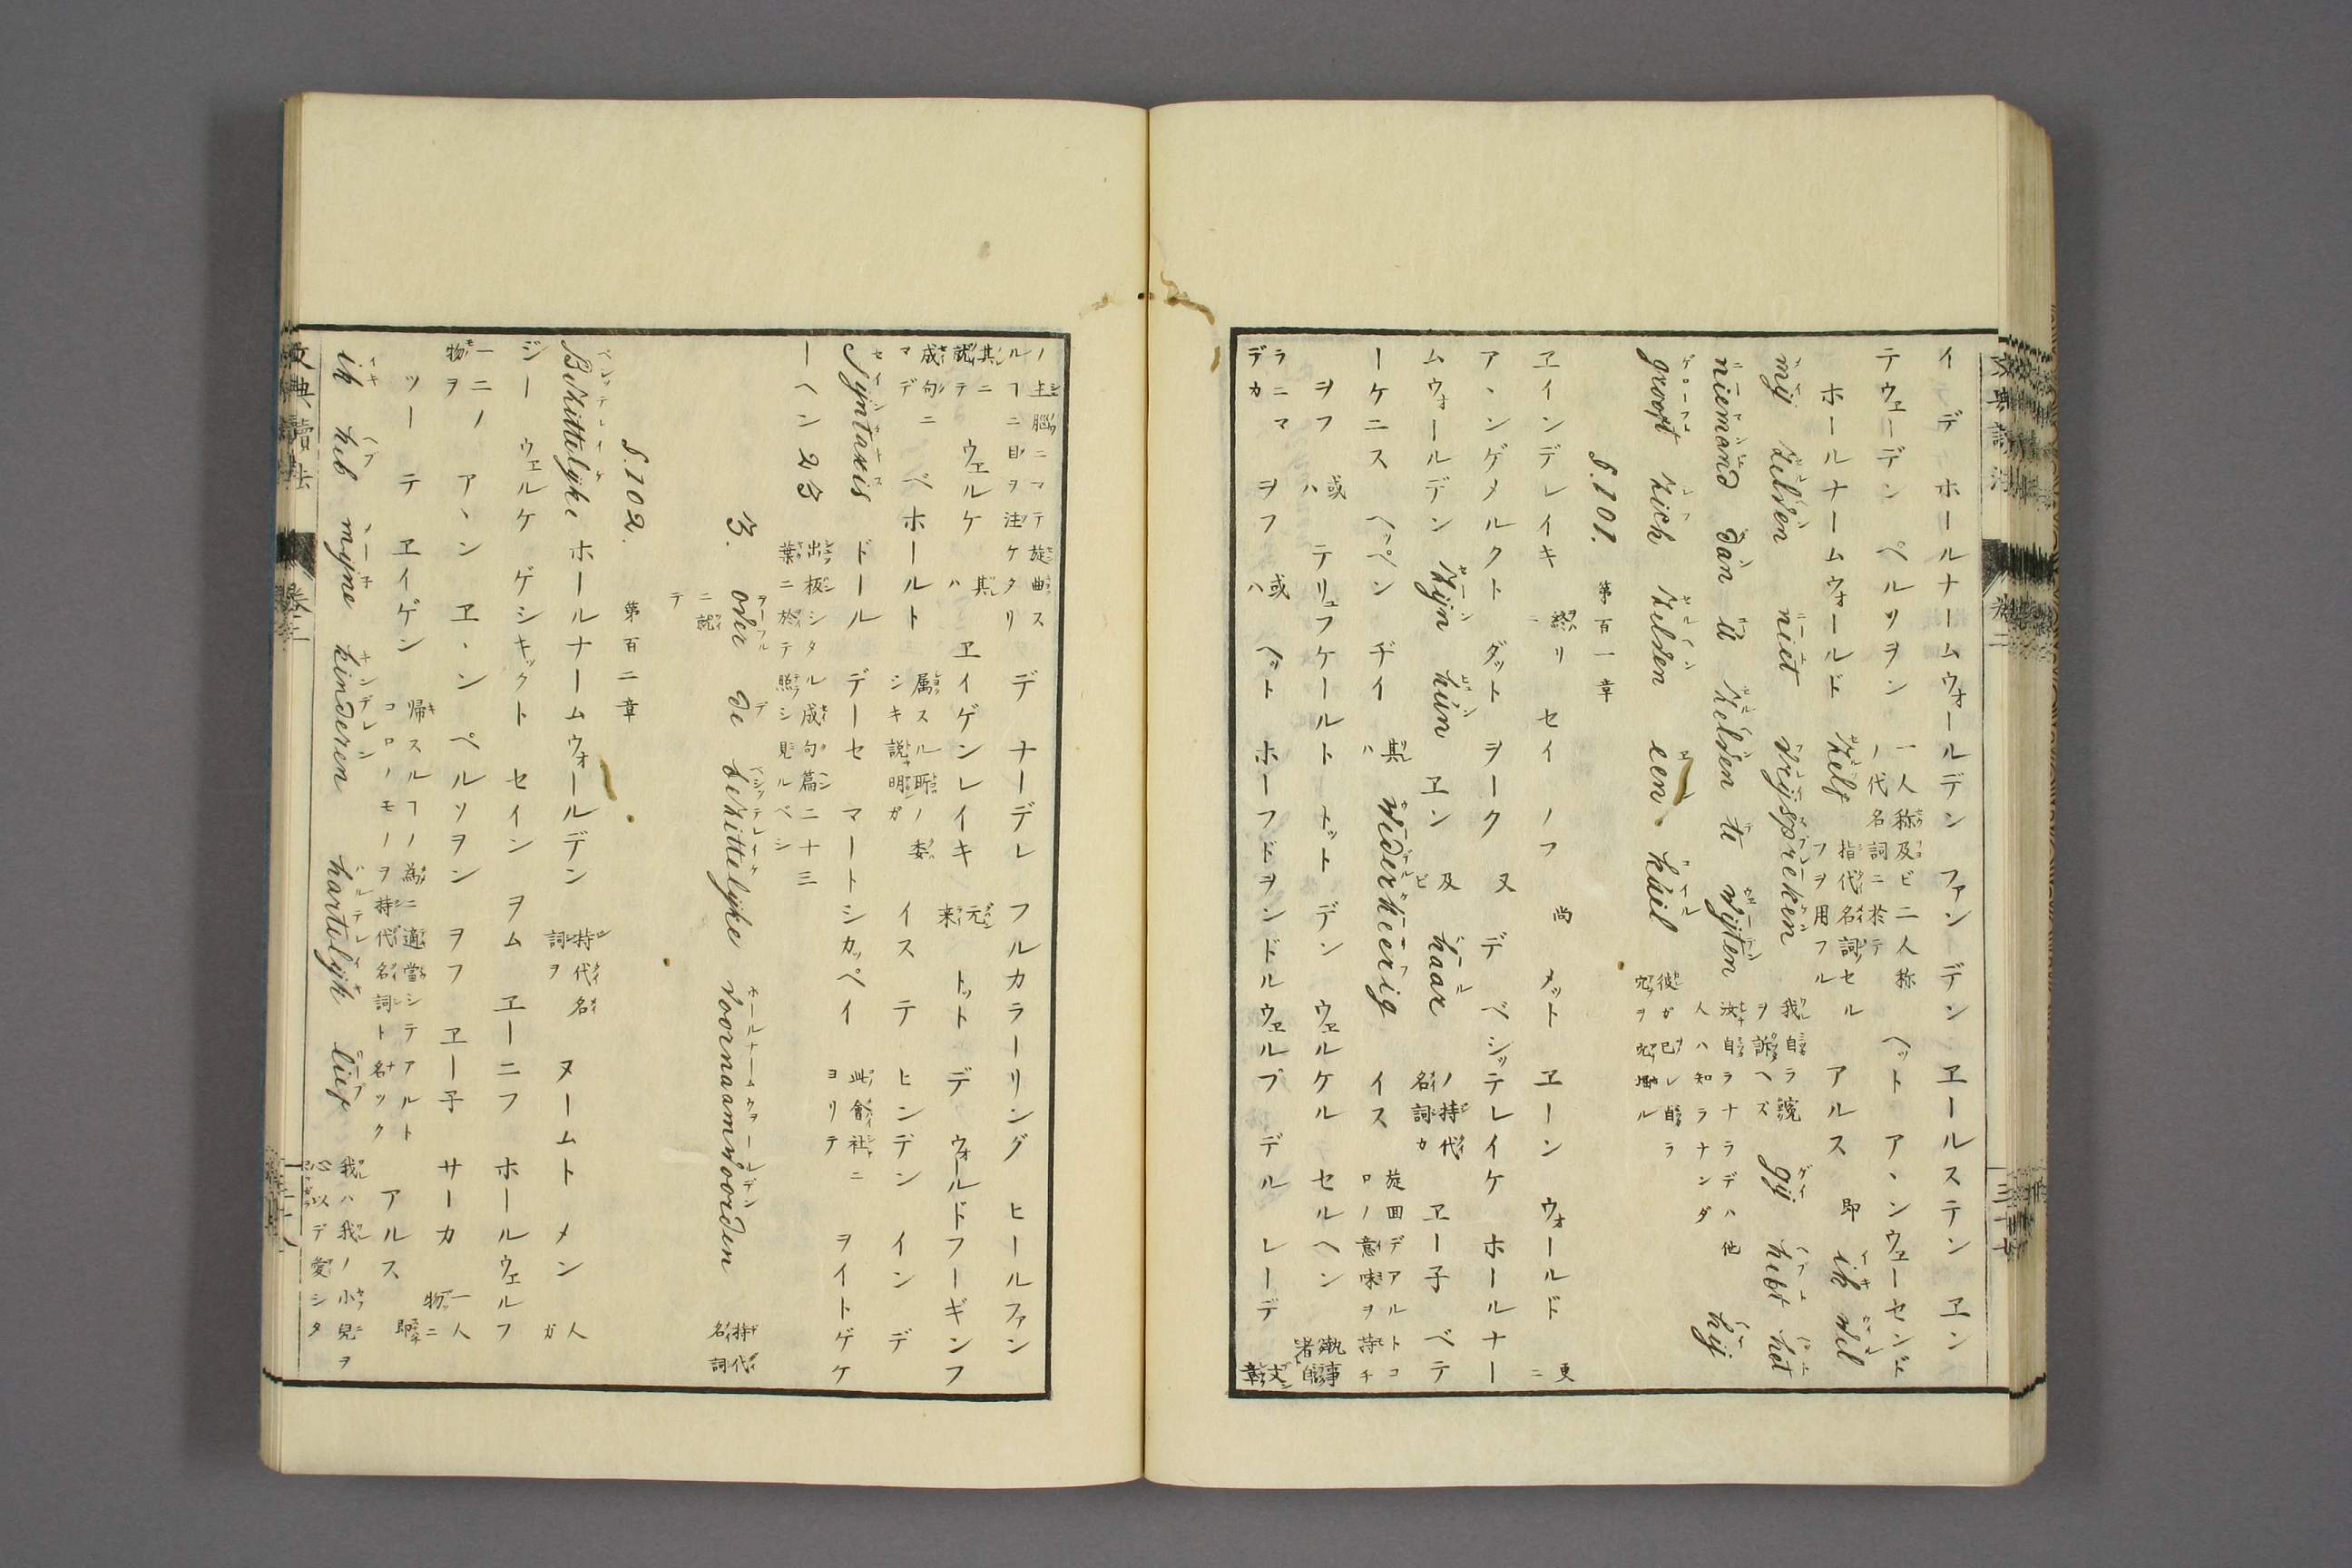 イ デ ホールナームウォールデン ファン デン ヱールステン ヱン
テウェーデン ペルソヲン 一人称及ビ二人称ノ代名詞ニ於テ ヘット アヽンウェーセンド
ホールナームウォールド zelf 指代名詞セルフヲ用フル アルス 即 ik wil
mij zelven niet vrijspreken 我自ラヲ訴ヘズ gij hebt het
niemand dan u zelven te wijten 汝自ラナラデハ他人ハ知ラナンダ hij
groef zich zelven een kuil 彼ガ己レ自ラ
§.101. 第百一章
ヱインデレイキ 終リニ セイ ノフ 尚 メット ヱーン ウォールド 更ニ
アヽンゲメルクト ダット ヲーク 又 デ ベシッテレイケ ホールナー
ムウォールデン zijn hun ヱン 及ビ haar ノ持代名詞カ ヱー子 ベテ
ーケニス ヘッペン ヂイ 其ハ wederkeerig イス 旋回デアルトコロノ意味ヲ持チ
ヲフ 或ハ テリュフケールト トット デン ウェルケル セルヘン 執事者自
ラニマデカ ヲフ 或ハ ヘット ホーフドヲンドルウェルプ デル レーデ 文章
ノ主脳ニマテ旋曲スルヿニ目ヲ注ケタリ デ ナーデレ フルカラーリング ヒールファン
其ニ就テ ウェルケ 其ハ ヱイゲンレイキ 元来 トット デ ウォールドフーギンフ
成句ニマデ ベホールト 属スル所ノ委シキ説明ガ イス テ ヒンデン イン デ
Syntaxis ドール デーセ マートシカッペイ 此會社ニヨリテ ヲイトゲケ
ーヘン 23 出板シタル成句篇二十三葉ニ於テ照シ見ルベシ
3. over de bezittelijke voornaamwoorden 持代名詞
ニ就テ
§.102. 第百二章
Bezittelijke ホールナームウォールデン 持代名詞ヲ ヌームト メン 人ガ
ジー ウェルケ ゲシキックト セイン ヲム ヱーニフ ホールウェルフ
一ニノ物ヲ アヽン ヱヽン ペルソヲン ヲフ ヱー子 サーカ 一人物ニ
ツー テ ヱイゲン 帰スルヿノ為ニ適當シテアルトコロノモノヲ持代名詞ト名ック アルス 即
ik heb mijne kinderen hartelijk lief 我ハ我ノ小児ヲ心以デ愛シタ